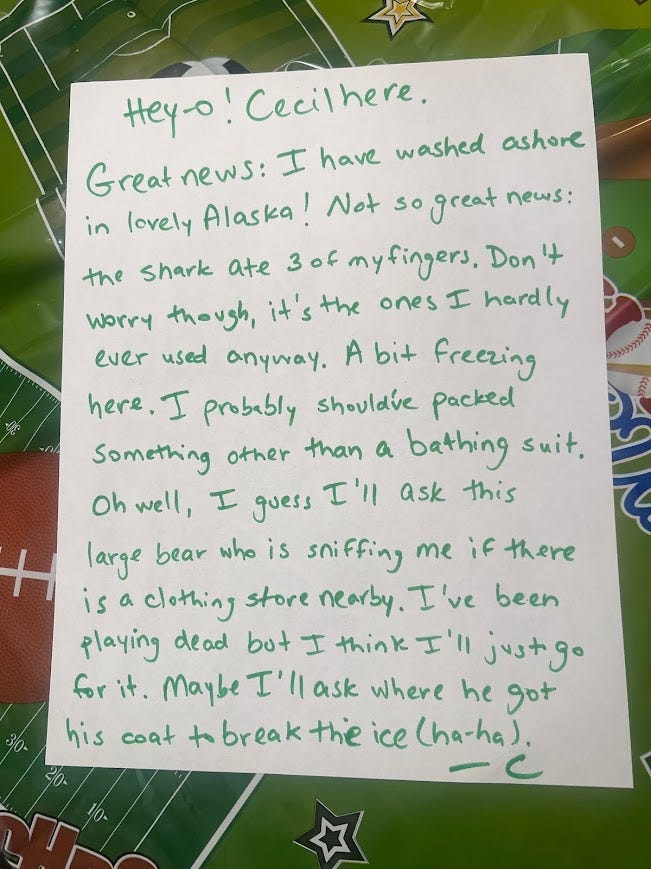 Hey-o! Cecil here.
Great news: I have washed ashore
in lovely Alaska! Not so great news:
the shark ate 3 of my fingers. Don't
worry though, it's the ones I hardly
ever used anyway. A bit freezing
here. I probably should've packed
something other than a bathing suit.
Oh well, I guess I'll ask this
large bear who is sniffing me if there
is a clothing store nearby. I've been
playing dead but I think I'll just go
for it. Maybe I'll ask where he got
his coat to break the ice (ha-ha).
— C
30-
20-
10-